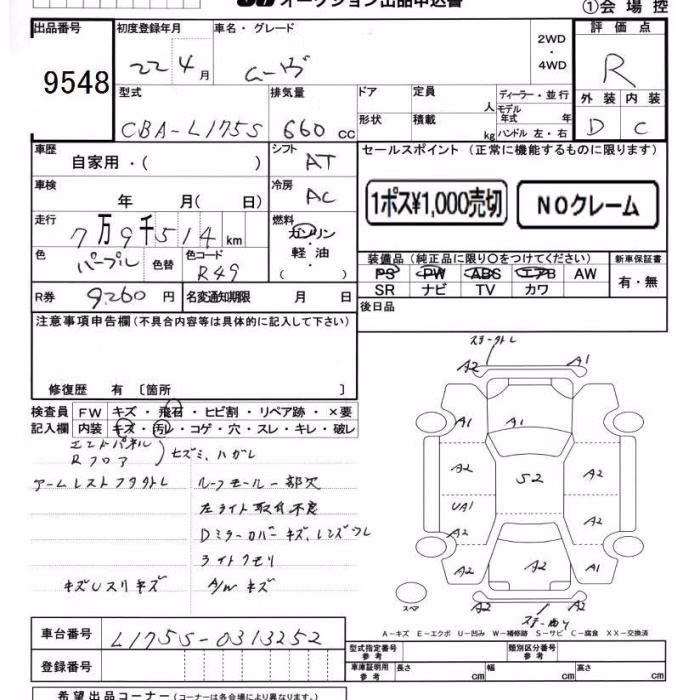 オークション出品申込書 ①会場控
出品番号 初度登録年月 車名・グレード 2WD・4WD 評価点
9548 22 4月 ムーヴ R
型式 排気量 ドア 定員 人 ディーラー・並行 外装 内装
CBA-L175S 660 cc 形状 積載 kg モデル年式 年 ハンドル 左・右 D C
車歴 自家用・( ) シフト AT セールスポイント (正常に機能するものに限ります)
車検 年 月( 日) 冷房 AC
1ポス¥1,000売切 NOクレーム
走行 7万9千514 km 燃料 ガソリン・軽油 ( )
色 パープル 色替 色コード R49
装備品 (純正品に限り○をつけてください) 新車保証書
PS PW ABS エアB AW 有・無
SR ナビ TV カワ
R券 9260 円 名変通知期限 月 日 後日品
注意事項申告欄 (不具合内容等は具体的に記入して下さい)
修復歴 有 〔箇所 〕
検査員 FW キズ・飛石・ヒビ割・リペア跡・×要
記入欄 内装 キズ・汚レ・コゲ・穴・スレ・キレ・破レ
エンドパネル
Rフロア
ヒズミ、ハガレ
アームレストフタクトレ ルーフモール一部欠
左ライト取付不良
Dミラーカバーキズ、レンズワレ
ライトクモリ
キズUスリキズ A/Wキズ
A2 A1
A1 A1 A1
A2 S2 A2
UA1 A2
A2
A2 A2 A1
A2 A2
スペア
A-キズ E-エクボ U-凹み W-補修跡 S-サビ C-腐食 XX-交換済
車台番号 L175S-0313252
型式指定番号 参考 類別区分番号 参考
登録番号 車庫証明用 参考 長さ cm 幅 cm 高さ cm
希望出品コーナー (コーナーは各会場により異なります。)